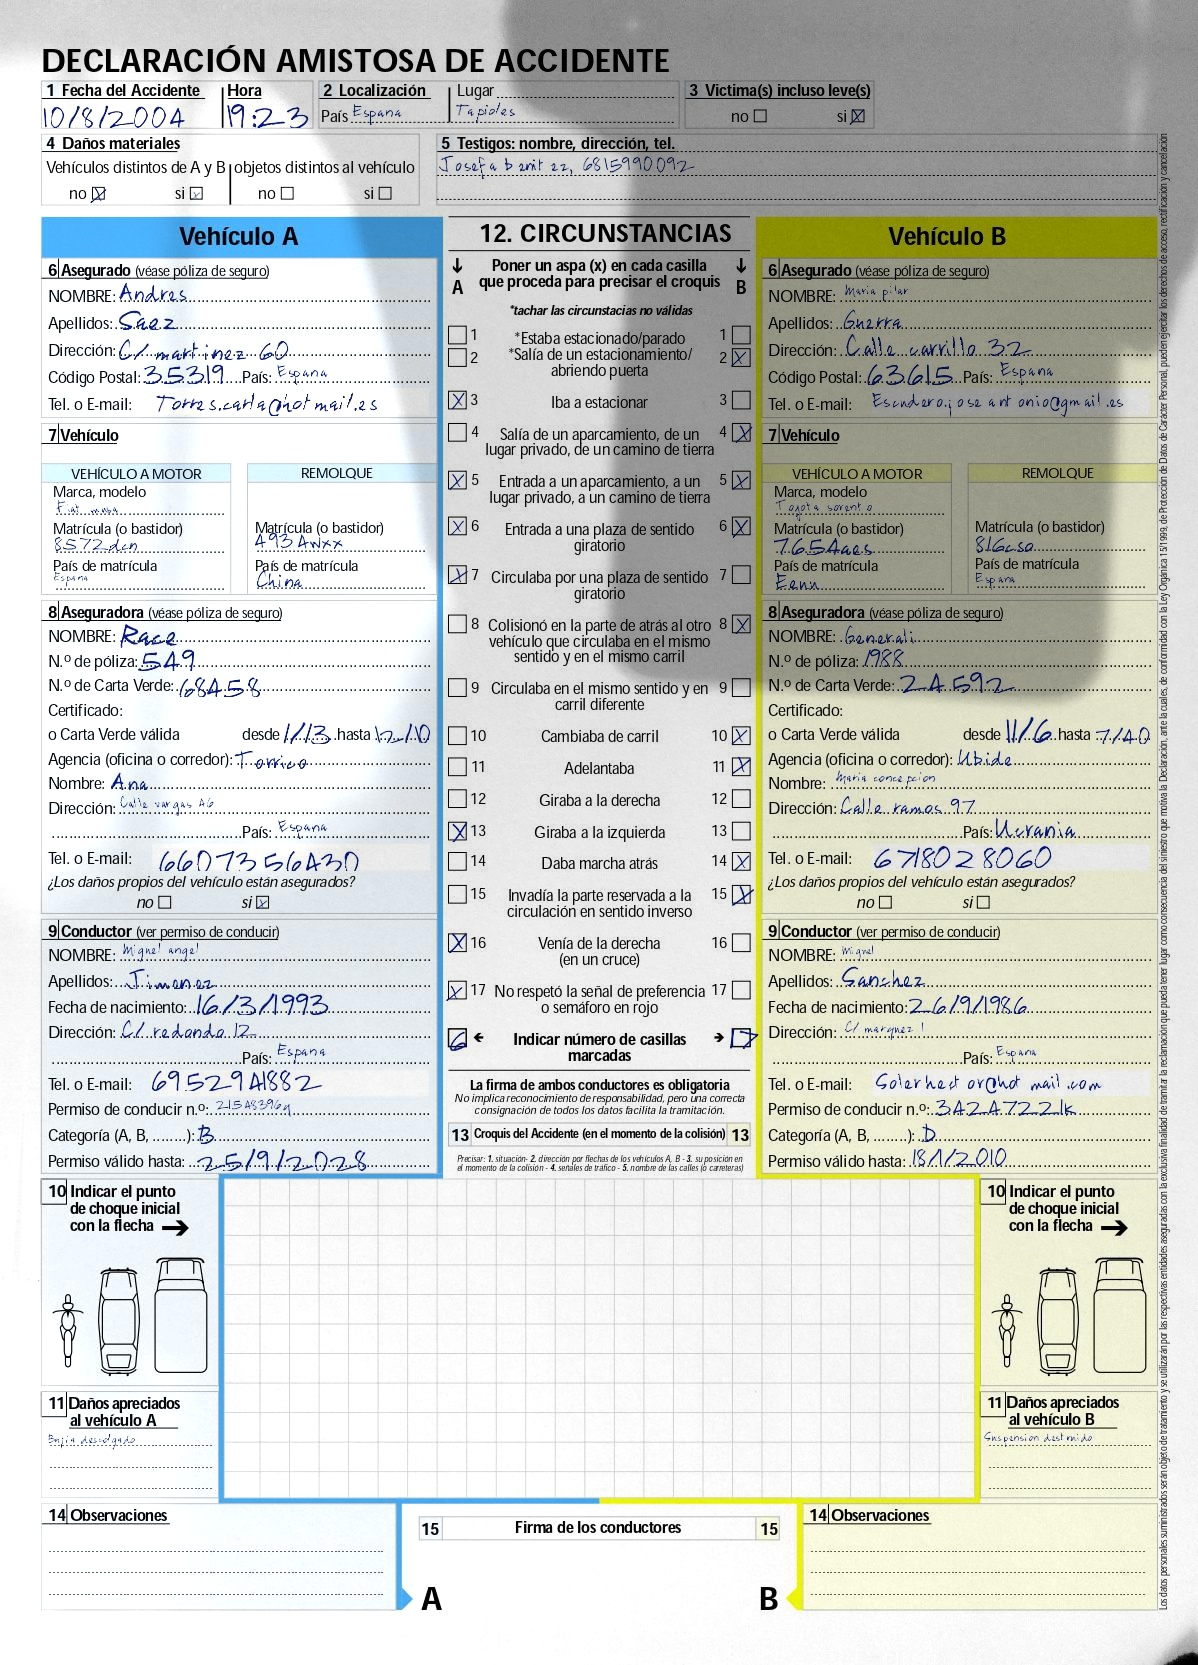 DECLARACIÓN AMISTOSA DE ACCIDENTE
1 Fecha del Accidente Hora 2 Localización Lugar 3 Victima(s) incluso leve(s)
10/8/2004 19:23 País Espana Tapioles no si
4 Daños materiales
Vehículos distintos de A y B objetos distintos al vehículo
no si no si
5 Testigos: nombre, dirección, tel.
Josefa benitez, 6815990092
Vehículo A
6 Asegurado (véase póliza de seguro)
NOMBRE: Andres
Apellidos: Saez
Dirección: C/ martinez 60
Código Postal: 35319 País: Espana
Tel. o E-mail: Torres.carla@hotmail.es
7 Vehículo
VEHÍCULO A MOTOR REMOLQUE
Marca, modelo
Fiat
Matrícula (o bastidor) Matrícula (o bastidor)
8572dcn 493Awxx
País de matrícula País de matrícula
Espana China
8 Aseguradora (véase póliza de seguro)
NOMBRE: Race
N.º de póliza: 549
N.º de Carta Verde: 68458
Certificado:
o Carta Verde válida desde 1/13 hasta 12/10
Agencia (oficina o corredor): Torrico
Nombre: Ana
Dirección: Calle vargas 46
País: Espana
Tel. o E-mail: 6607356430
¿Los daños propios del vehículo están asegurados?
no si
9 Conductor (ver permiso de conducir)
NOMBRE: Miguel angel
Apellidos: Jimenez
Fecha de nacimiento: 16/3/1993
Dirección: C/ redondo 12
País: Espana
Tel. o E-mail: 6952941882
Permiso de conducir n.º:
Categoría (A, B, ........): B
Permiso válido hasta: 25/9/2028
12. CIRCUNSTANCIAS
A Poner un aspa (x) en cada casilla que proceda para precisar el croquis B
*tachar las circunstacias no válidas
1 *Estaba estacionado/parado 1
2 *Salía de un estacionamiento/ 2
abriendo puerta
3 Iba a estacionar 3
4 Salía de un aparcamiento, de un 4
lugar privado, de un camino de tierra
5 Entrada a un aparcamiento, a un 5
lugar privado, a un camino de tierra
6 Entrada a una plaza de sentido 6
giratorio
7 Circulaba por una plaza de sentido 7
giratorio
8 Colisionó en la parte de atrás al otro 8
vehículo que circulaba en el mismo
sentido y en el mismo carril
9 Circulaba en el mismo sentido y en 9
carril diferente
10 Cambiaba de carril 10
11 Adelantaba 11
12 Giraba a la derecha 12
13 Giraba a la izquierda 13
14 Daba marcha atrás 14
15 Invadía la parte reservada a la 15
circulación en sentido inverso
16 Venía de la derecha 16
(en un cruce)
17 No respetó la señal de preferencia 17
o semáforo en rojo
6 Indicar número de casillas 7
marcadas
La firma de ambos conductores es obligatoria
No implica reconocimiento de responsabilidad, pero una correcta
consignación de todos los datos facilita la tramitación.
13 Croquis del Accidente (en el momento de la colisión) 13
Precisar: 1. situación- 2. dirección por flechas de los vehículos A, B - 3. su posición en
el momento de la colisión - 4. señales de tráfico - 5. nombre de las calles (o carreteras)
Vehículo B
6 Asegurado (véase póliza de seguro)
NOMBRE: Maria pilar
Apellidos: Guerra
Dirección: Calle carrillo 32
Código Postal: 63615 País: Espana
Tel. o E-mail: Escudero.joseantonio@gmail.es
7 Vehículo
VEHÍCULO A MOTOR REMOLQUE
Marca, modelo
Toyota sorento
Matrícula (o bastidor) Matrícula (o bastidor)
7654aes 816csa
País de matrícula País de matrícula
Eeuu Espana
8 Aseguradora (véase póliza de seguro)
NOMBRE: Generali
N.º de póliza: 1988
N.º de Carta Verde: 24592
Certificado:
o Carta Verde válida desde 11/6 hasta 7/40
Agencia (oficina o corredor): Ubide
Nombre: Maria concepcion
Dirección: Calle ramos 97
País: Ucrania
Tel. o E-mail: 6718028060
¿Los daños propios del vehículo están asegurados?
no si
9 Conductor (ver permiso de conducir)
NOMBRE: Miguel
Apellidos: Sanchez
Fecha de nacimiento: 26/9/1986
Dirección: C/ marquez 1
País: Espana
Tel. o E-mail: Solerhector@hotmail.com
Permiso de conducir n.º: 34247221k
Categoría (A, B, ........): D
Permiso válido hasta: 18/1/2010
10 Indicar el punto
de choque inicial
con la flecha
11 Daños apreciados
al vehículo A
Bujia descolgado
10 Indicar el punto
de choque inicial
con la flecha
11 Daños apreciados
al vehículo B
Suspension destruido
14 Observaciones
15 Firma de los conductores 15
A B
14 Observaciones
Los datos personales suministrados serán objeto de tratamiento y se utilizarán por las respectivas entidades aseguradas con la exclusiva finalidad de tramitar la reclamación que pueda tener lugar como consecuencia del siniestro que motiva la Declaración, ante la cuales, de conformidad con la Ley Orgánica 15/1999, de Protección de Datos de Carácter Personal, pueden ejercitar los derechos de acceso, rectificación y cancelación